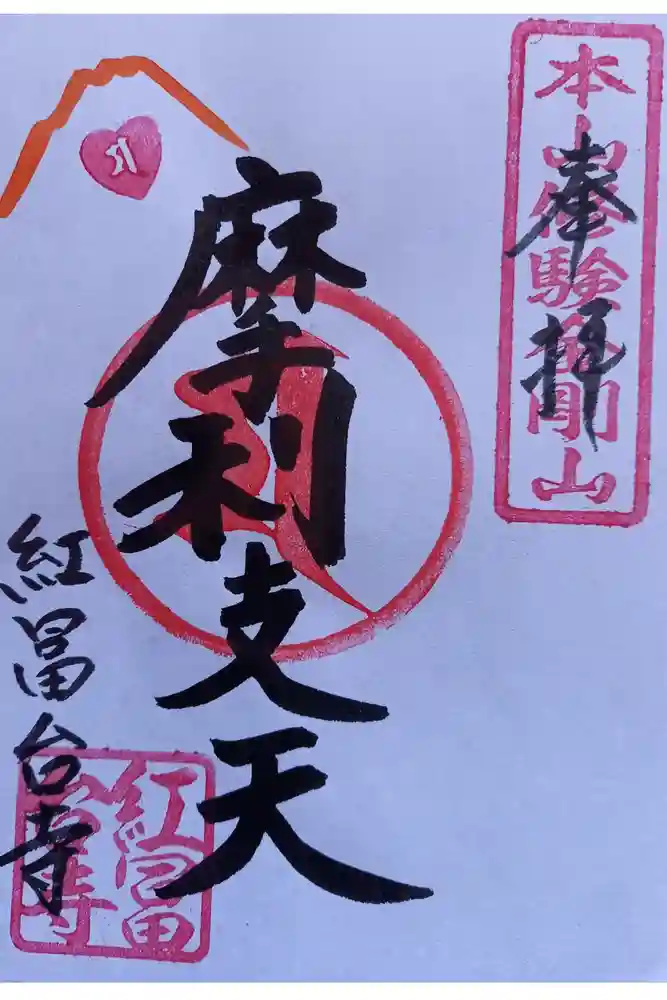 本山修験金剛山
奉拝
摩利支天
紅冨台寺
紅冨台寺